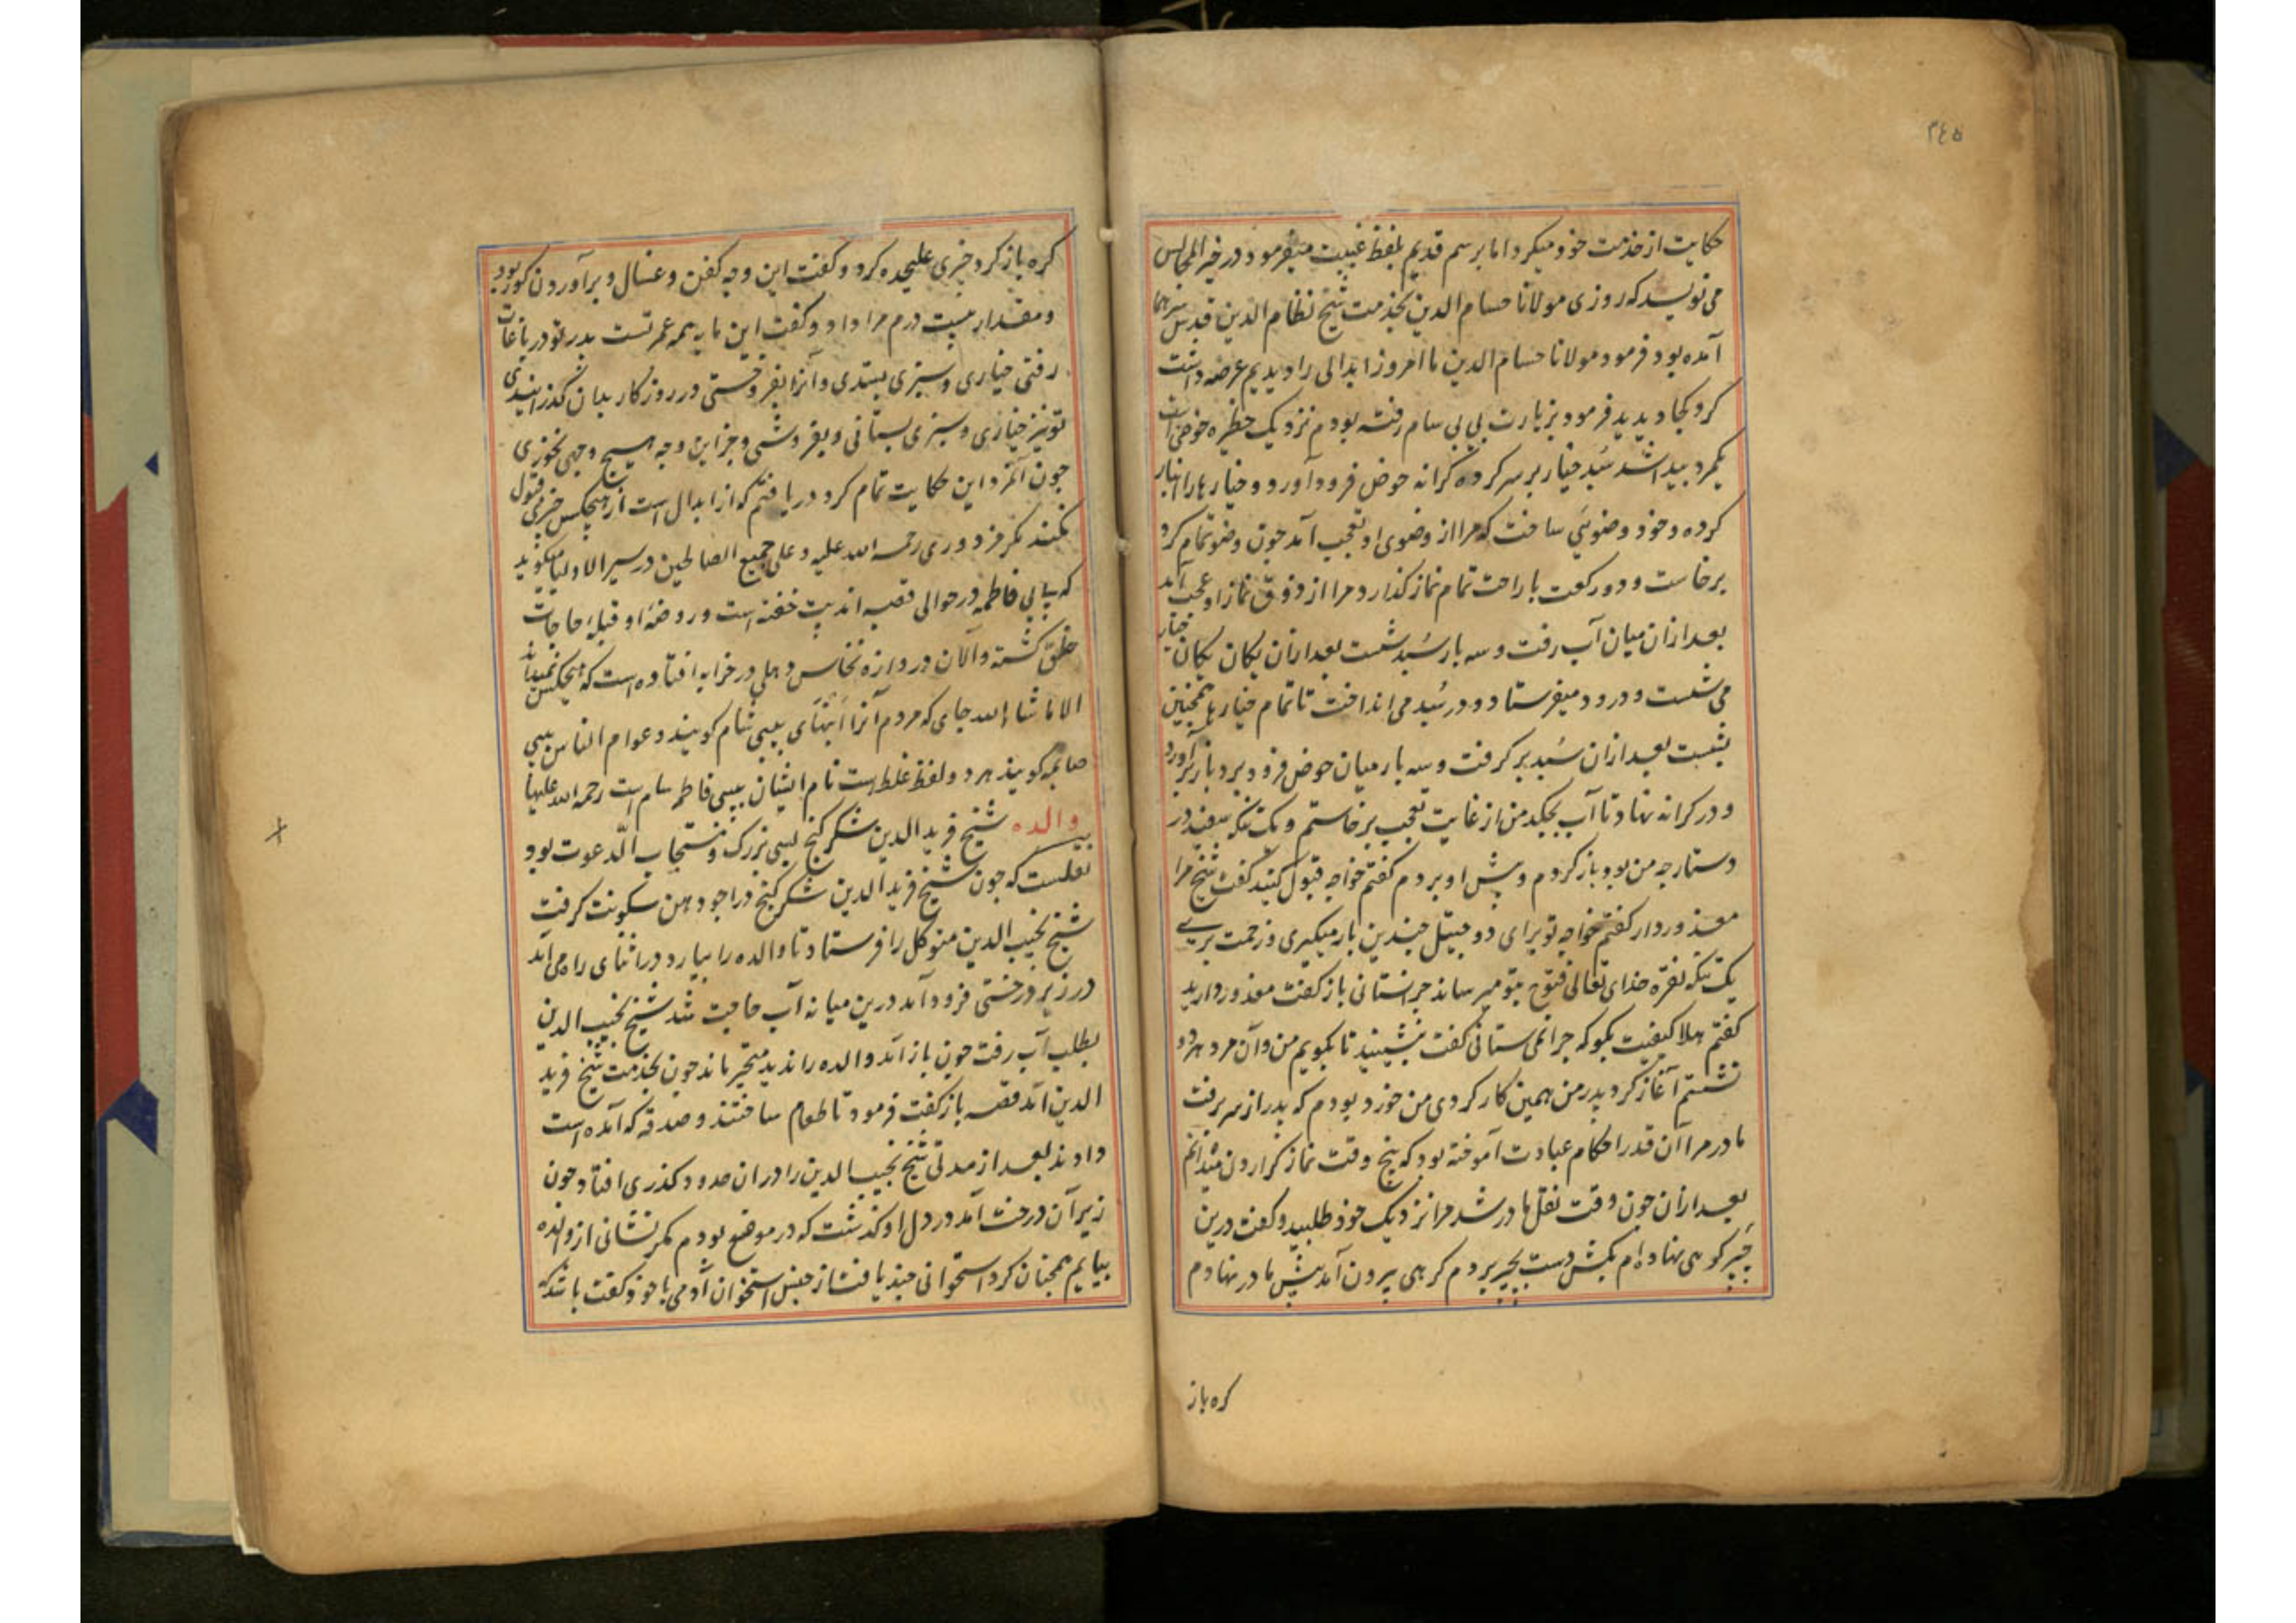 ۲٤۵
حکایت از خدمت خود میکرد اما برسم قدیم بلفظ غیبت میفرمود و در خیر المجالس
می نویسد که روزی مولانا حسام الدین بخدمت شیخ نظام الدین قدس سرهما
آمده بود فرمود مولانا حسام الدین ما امروز ابدالی را دیدیم عرضه داشت
کرد کجا دیدید فرمود بزیارت بی بی سام رفته بودم نزدیک حظیره حوض است
یکمرد پیدا شد سبد خیار بر سر کرده کرانه حوض فرود آورد و خیارها را انبار
کرده و خود وضوئی ساخت که مرا از وضوی او تعجب آمد چون وضو تمام کرد
برخاست و دو رکعت با راحت تمام نماز کذارد و مرا از ذوق نماز او عجب آمد
بعد از ان میان آب رفت و سه بار سبد شست بعد ازان یکان یکان خیار
می شست و درود میفرستاد و در سبد می انداخت تا تمام خیارها همچنین
بشست بعد ازان سبد بر کرفت و سه بار میان حوض فرو برد و باز برآورد
و در کرانه نهاد تا آب بچکد من از غایت تعجب برخاستم و یک تنکه سفید در
دستارچه من بود باز کردم و پیش او بردم کفتم خواجه قبول کنید کفت شیخ مرا
معذور دار کفتم خواجه تو برای دو جیتل چندین بار میکیری و زحمت بری
یک تنکه نقره خدای تعالی فتوح بتو میرساند چرا نستانی باز کفت معذور دارید
کفتم هلا کیفیت بکو که چرا نمی ستانی کفت بنشینید تا بکویم من و آن مرد هر دو
نشستم آغاز کرد پدر من همین کار کردی من خورد بودم که پدر از سر برفت
مادر مرا آن قدر احکام عبادت آموخته بود که پنج وقت نماز کزاردن میدانم
بعد ازان چون وقت نقل مادر شد مرا نزدیک خود طلبید و کفت درین
چپر کرهی نهاده ام بکش دست بچپر بردم کرهی بیرون آمد پیش مادر نهادم
کره باز
کره باز کرد چیزی علیحده کرد و کفت این وجه کفن و غسال و برآوردن کور بود
و مقدار بیست درم مرا داد و کفت این مایه همه عمر تست پدر تو در باغات
رفتی خیاری و سبزی بستدی و آنرا بفروختی و روزکار بدان کذرانیدی
تو نیز خیاری و سبزی بستانی و بفروشی و جز این وجه هیچ وجهی نخوری
چون آنمرد این حکایت تمام کرد دریافتم که از ابدال است از هیچکس چیزی قبول
نکند مکر مزدوری رحمه الله علیه و علی جمیع الصالحین در سیر الاولیا میکوید
که بی بی فاطمه در حوالی قصبه اندپت خفته است و روضه او قبله حاجات
خلق کشته و الان در دروازه نخاس دهلی در خرابه افتاده است که هیچکس نمیداند
الا ماشا الله جای که مردم آنرا بیبی شام کویند و عوام الناس بیبی
صایمه کویند هر دو لفظ غلط است نام ایشان بیبی فاطمه سام است رحمه الله علیها
والده شیخ فرید الدین شکر کنج بسی بزرک و مستجاب الدعوت بود
نقلست که چون شیخ فرید الدین شکر کنج در اجودهن سکونت کرفت
شیخ نجیب الدین متوکل را فرستاد تا والده را بیارد در اثنای راه می آمد
در زیر درختی فرود آمد درین میانه آب حاجت شد شیخ نجیب الدین
بطلب آب رفت چون باز آمد والده را ندید متحیر ماند چون بخدمت شیخ فرید
الدین آمد قصه باز کفت فرمود تا طعام ساختند و صدقه که آمده است
دادند بعد از مدتی شیخ نجیب الدین را در ان حدود کذری افتاد چون
زیر آن درخت آمد در دل او کذشت که در موضع بودم مکر نشانی از والده
بیابم همچنان کرد استخوانی چند یافت از جنس استخوان آدمی با خود کفت باشد که